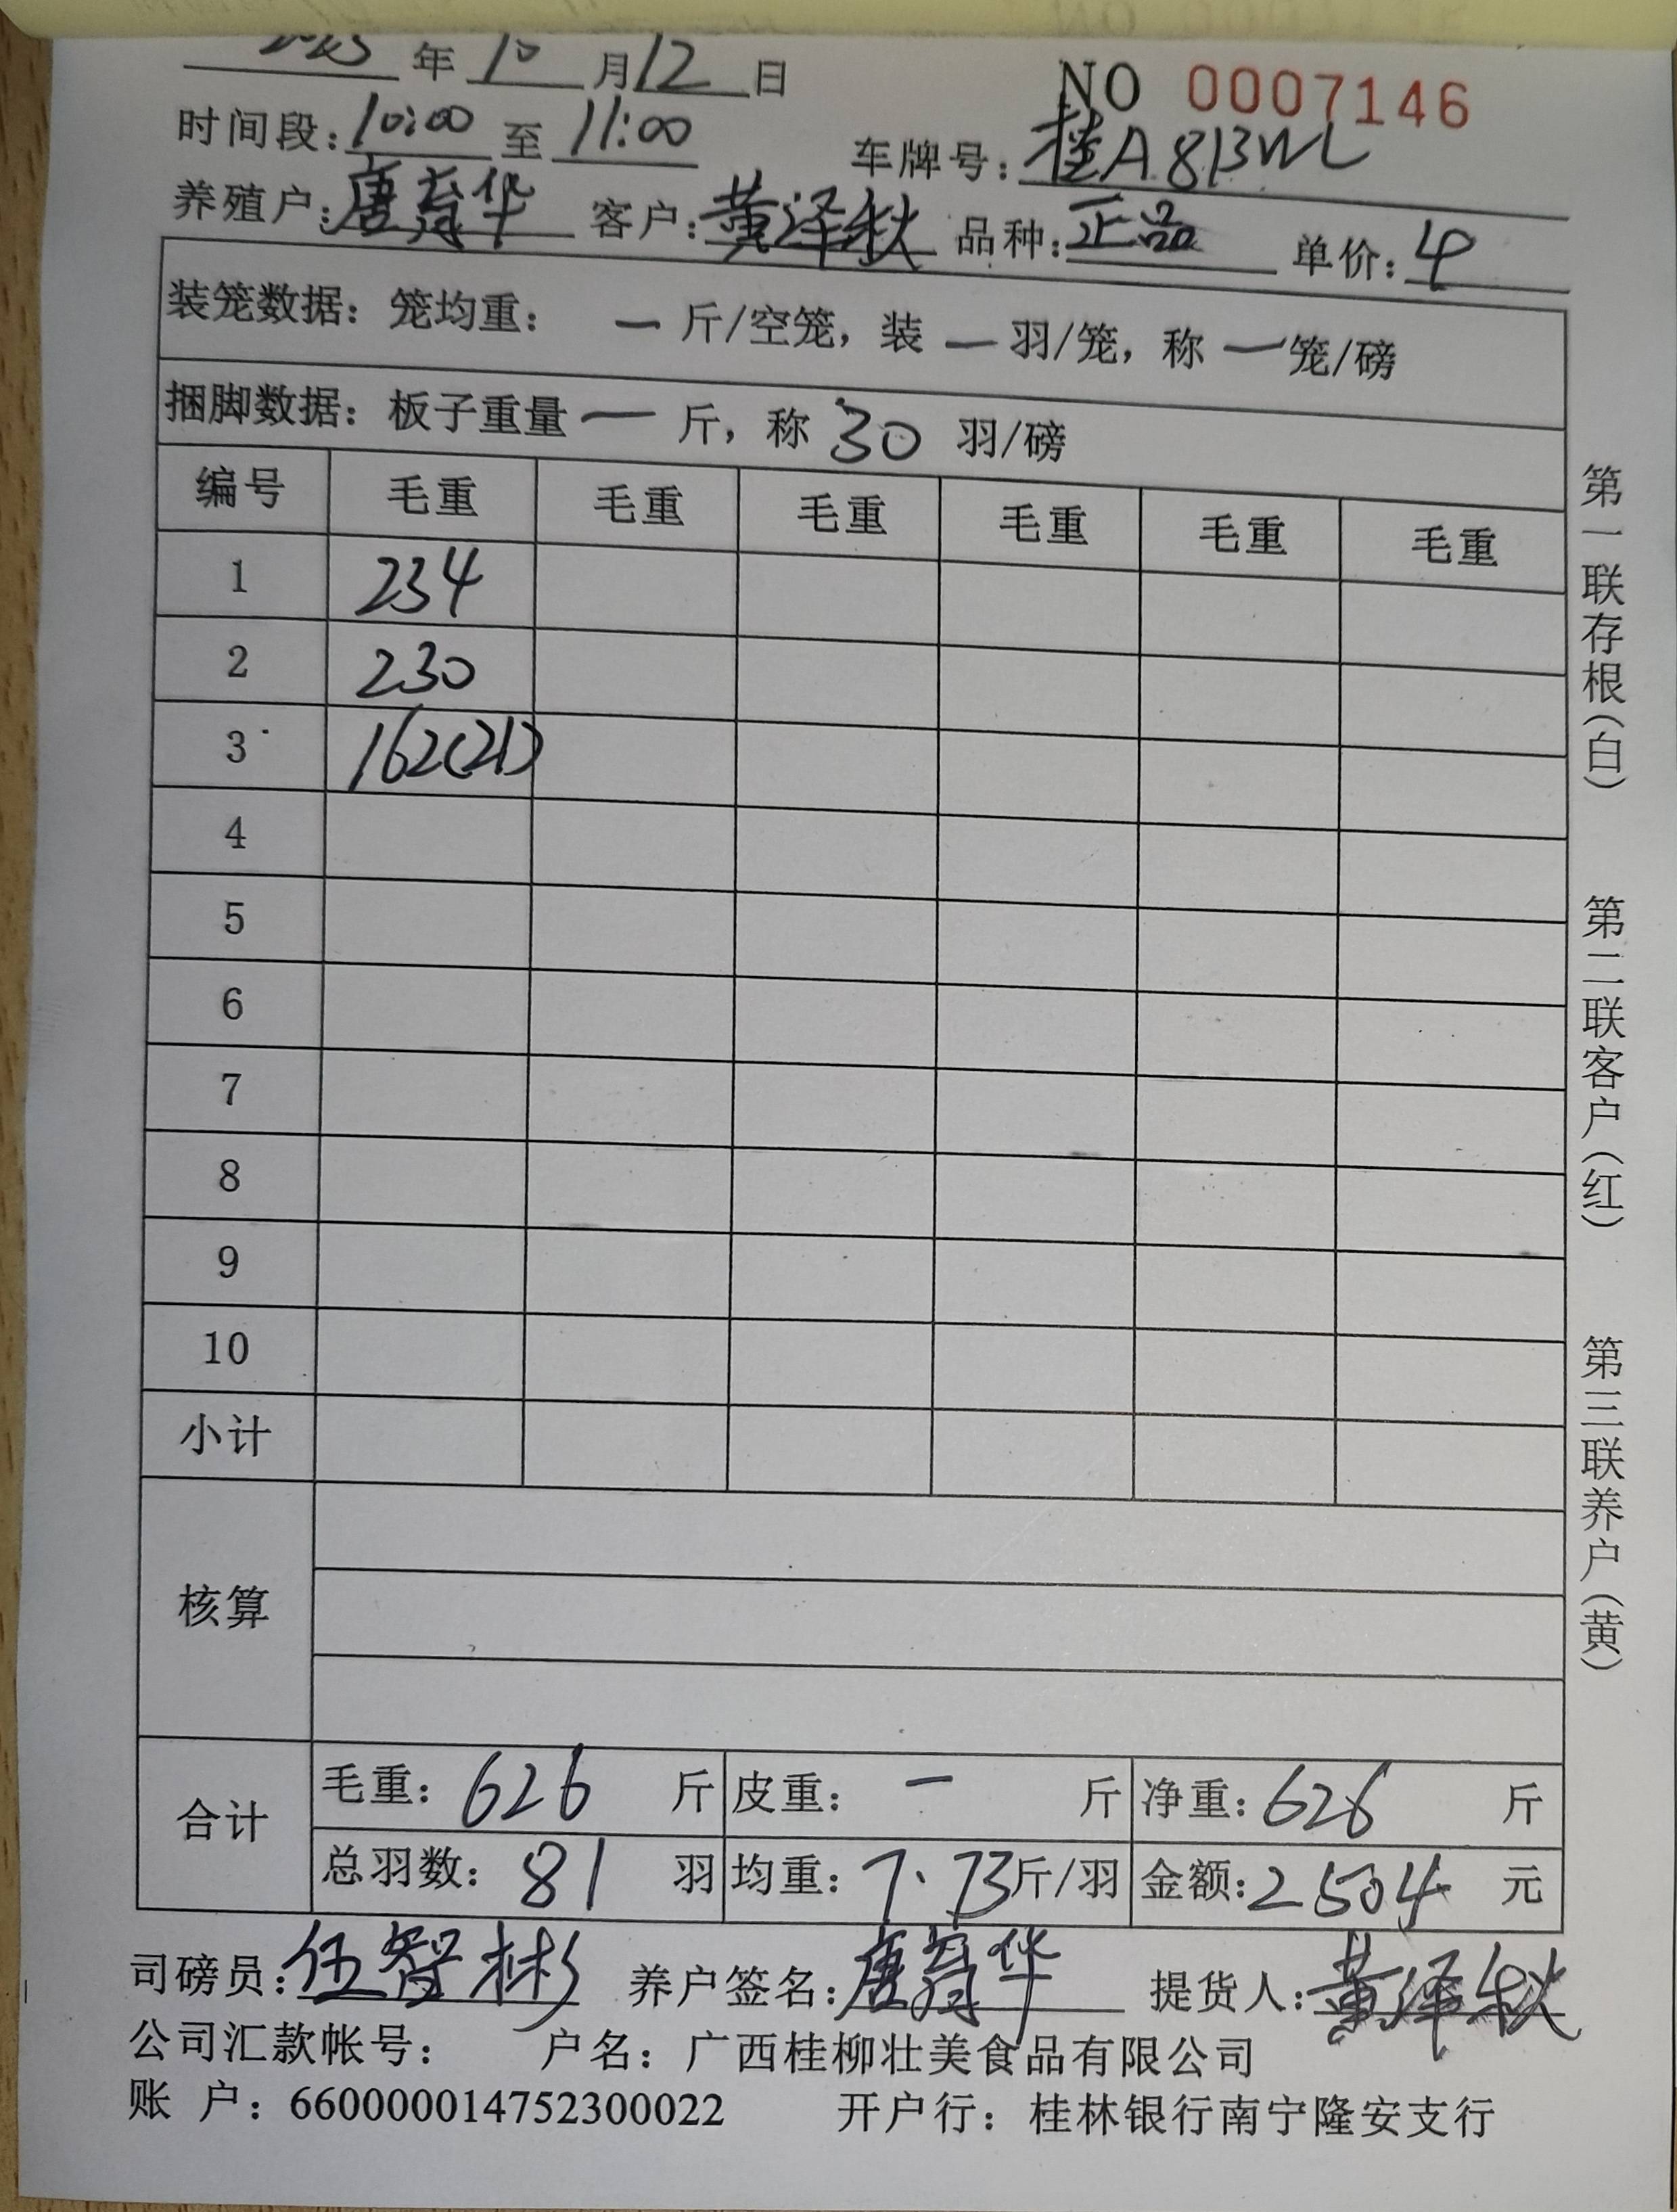 2025年10月12日 NO 0007146
时间段:10:00至11:00 车牌号:桂A813WL
养殖户:唐育华 客户:黄泽秋 品种:正品 单价:4
装笼数据:笼均重: 一 斤/空笼,装 一 羽/笼,称 一 笼/磅
捆脚数据:板子重量 一 斤,称 30 羽/磅
编号 毛重 毛重 毛重 毛重 毛重 毛重
1 234
2 230
3 162(21)
4
5
6
7
8
9
10
小计
核算
合计 毛重:626 斤 皮重: 一 斤 净重:626 斤
总羽数:81 羽 均重:7.73斤/羽 金额:2504 元
司磅员:伍智彬 养户签名:唐育华 提货人:黄泽秋
公司汇款帐号: 户名:广西桂柳壮美食品有限公司
账 户:660000014752300022 开户行:桂林银行南宁隆安支行
第一联存根(白)
第二联客户(红)
第三联养户(黄)